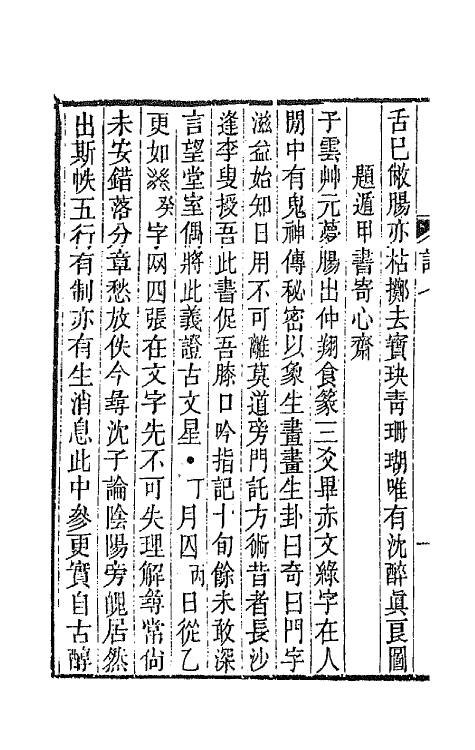 舌已敝腸亦枯擲去寶玦靑珊瑚唯有沈醉眞良圖
題遁甲書寄心齋
子雲艸元夢腸出仲翔食篆三爻畢赤文綠字在人
閒中有鬼神傳秘密以象生畫畫生卦曰奇曰門字
滋益始知日用不可離莫道旁門託方術昔者長沙
逢李叟授吾此書促吾膝口吟指記十旬餘未敢深
言望堂室偶將此義證古文星●丁月囚丙日從乙
更如癸字网四張在文字先不可失理解尋常尙
未安錯落分章愁放佚今尋沈子論陰陽旁皉居然
出斯帙五行有制亦有生消息此中參更實自古醇
詩七
一